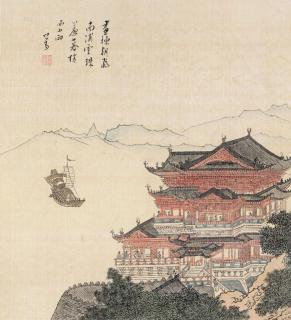 畫棟朝飛
南浦雲珠
簾暮捲
西山雨
心畬